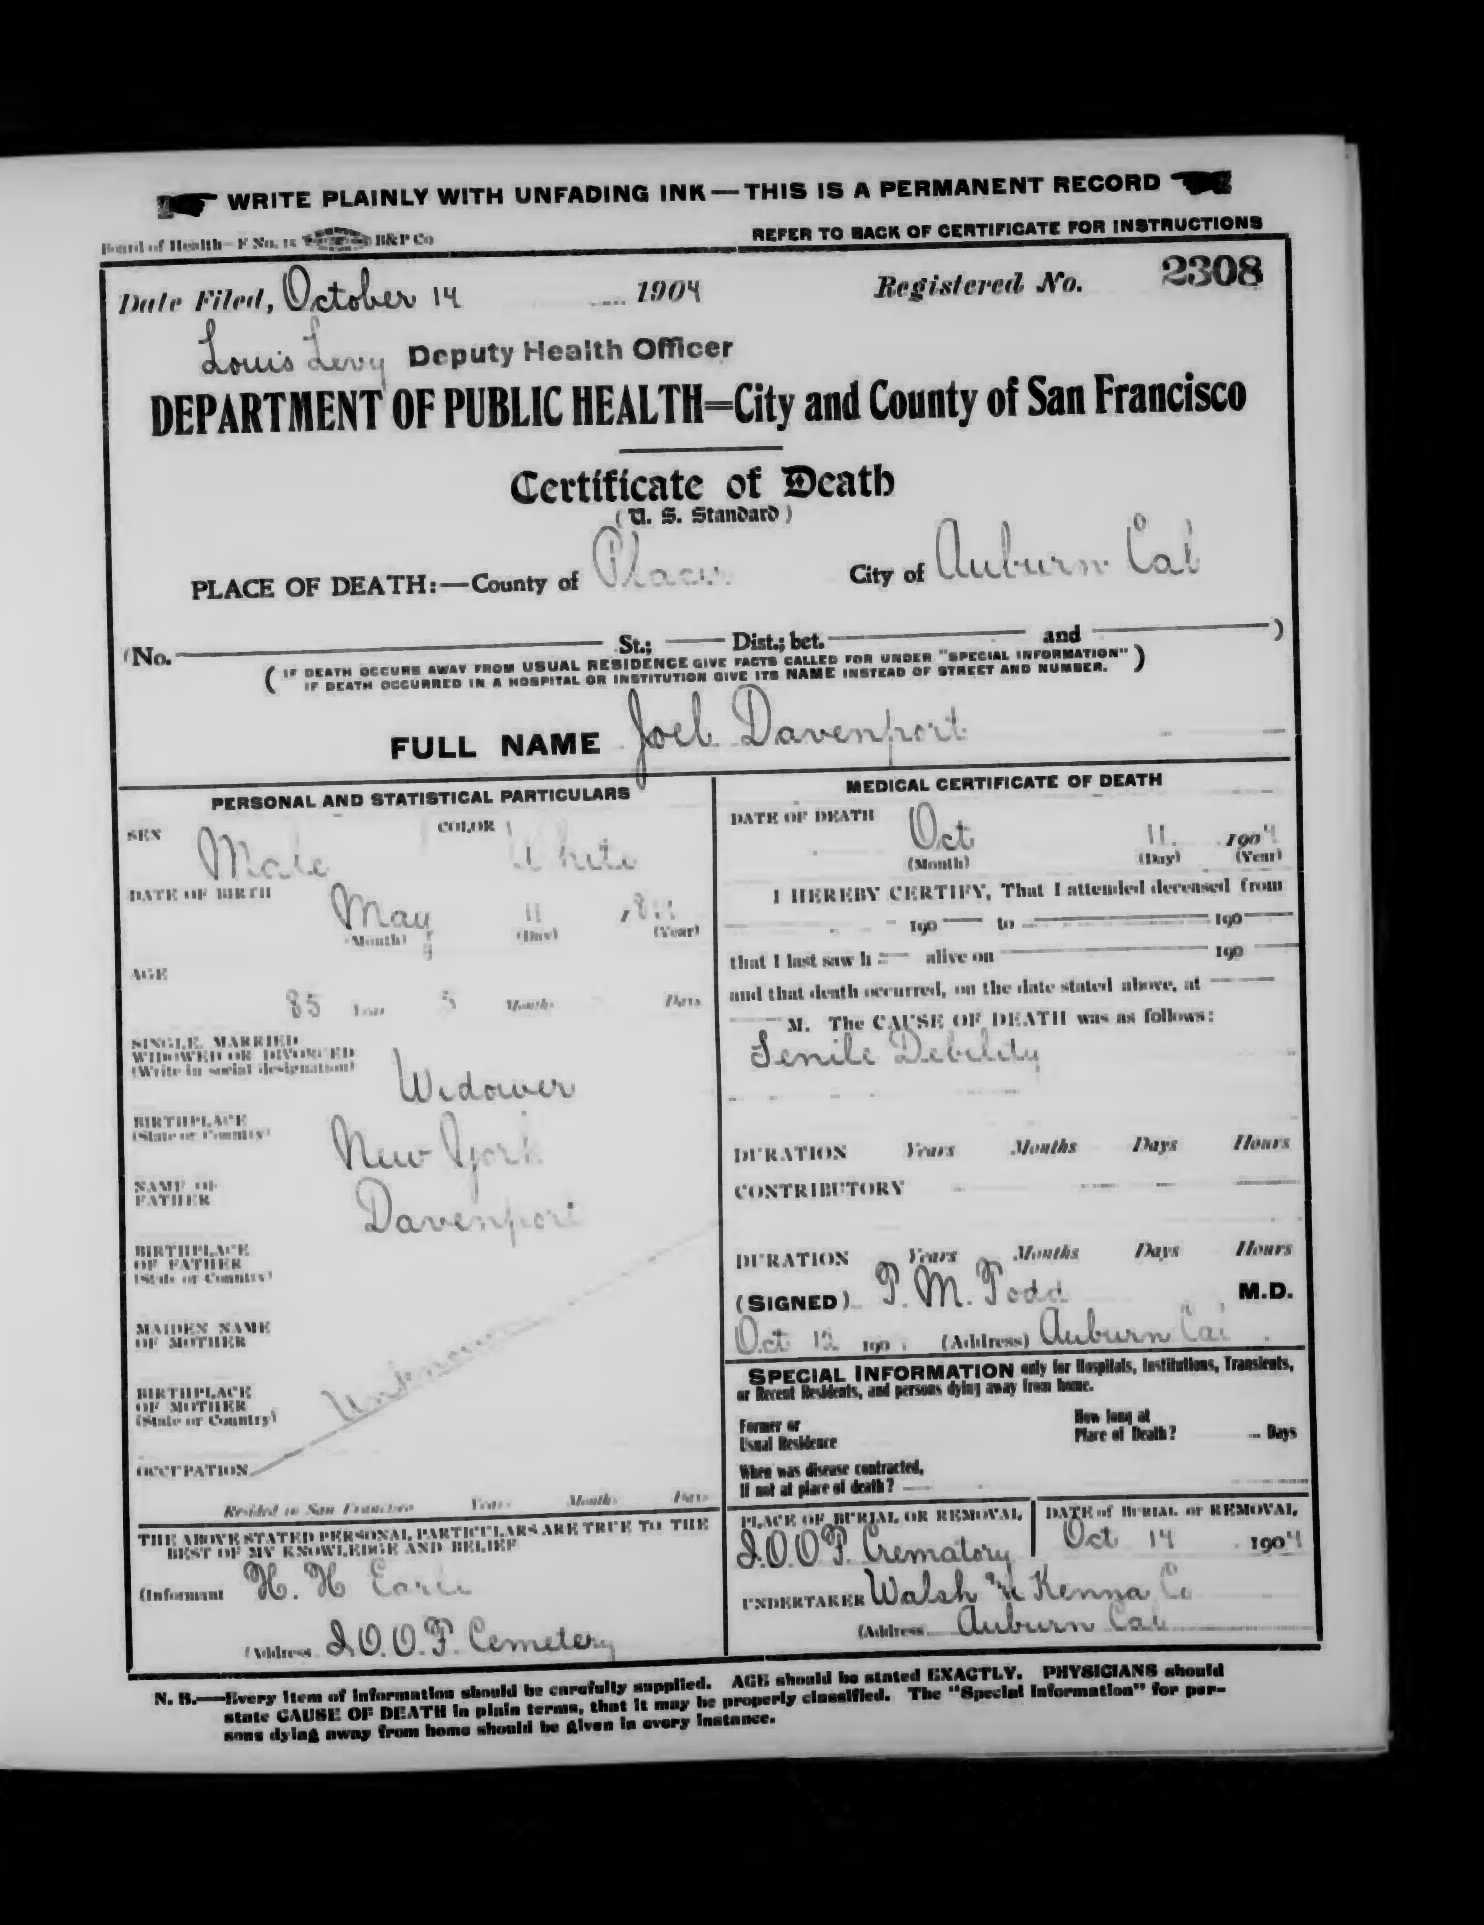 WRITE PLAINLY WITH UNFADING INK — THIS IS A PERMANENT RECORD
Board of Health—F No. 15 B&P Co
REFER TO BACK OF CERTIFICATE FOR INSTRUCTIONS
Date Filed, October 14 1904 Registered No. 2308
Louis Levy Deputy Health Officer
DEPARTMENT OF PUBLIC HEALTH=City and County of San Francisco
Certificate of Death
(U. S. Standard)
PLACE OF DEATH:—County of Placer City of Auburn Cal
(No. St.; Dist.; bet. and )
(IF DEATH OCCURS AWAY FROM USUAL RESIDENCE GIVE FACTS CALLED FOR UNDER "SPECIAL INFORMATION"
IF DEATH OCCURRED IN A HOSPITAL OR INSTITUTION GIVE ITS NAME INSTEAD OF STREET AND NUMBER.)
FULL NAME Joel Davenport
PERSONAL AND STATISTICAL PARTICULARS
SEX Male COLOR White
DATE OF BIRTH May 11 18
(Month) (Day) (Year)
AGE
85 Years 5 Months Days
SINGLE, MARRIED
WIDOWED OR DIVORCED
(Write in social designation)
Widower
BIRTHPLACE
(State or Country)
New York
NAME OF
FATHER
Davenport
BIRTHPLACE
OF FATHER
(State or Country)
MAIDEN NAME
OF MOTHER
Unknown
BIRTHPLACE
OF MOTHER
(State or Country)
OCCUPATION
Resided in San Francisco Years Months Days
THE ABOVE STATED PERSONAL PARTICULARS ARE TRUE TO THE
BEST OF MY KNOWLEDGE AND BELIEF
(Informant H. H Earle
(Address I.O.O.F. Cemetery
MEDICAL CERTIFICATE OF DEATH
DATE OF DEATH
Oct 11 1904
(Month) (Day) (Year)
I HEREBY CERTIFY, That I attended deceased from
190 to 190
that I last saw h alive on 190
and that death occurred, on the date stated above, at
M. The CAUSE OF DEATH was as follows:
Senile Debility
DURATION Years Months Days Hours
CONTRIBUTORY
DURATION Years Months Days Hours
(SIGNED) T. M. Todd M.D.
Oct 12 190 (Address) Auburn Cal
SPECIAL INFORMATION only for Hospitals, Institutions, Transients,
or Recent Residents, and persons dying away from home.
Former or
Usual Residence
How long at
Place of Death? Days
When was disease contracted,
If not at place of death?
PLACE OF BURIAL OR REMOVAL
I.O.O.F. Crematory
DATE of BURIAL or REMOVAL
Oct 14 1904
UNDERTAKER Walsh McKenna Co
(Address Auburn Cal
N. B.—Every item of information should be carefully supplied. AGE should be stated EXACTLY. PHYSICIANS should
state CAUSE OF DEATH in plain terms, that it may be properly classified. The "Special Information" for per-
sons dying away from home should be given in every instance.